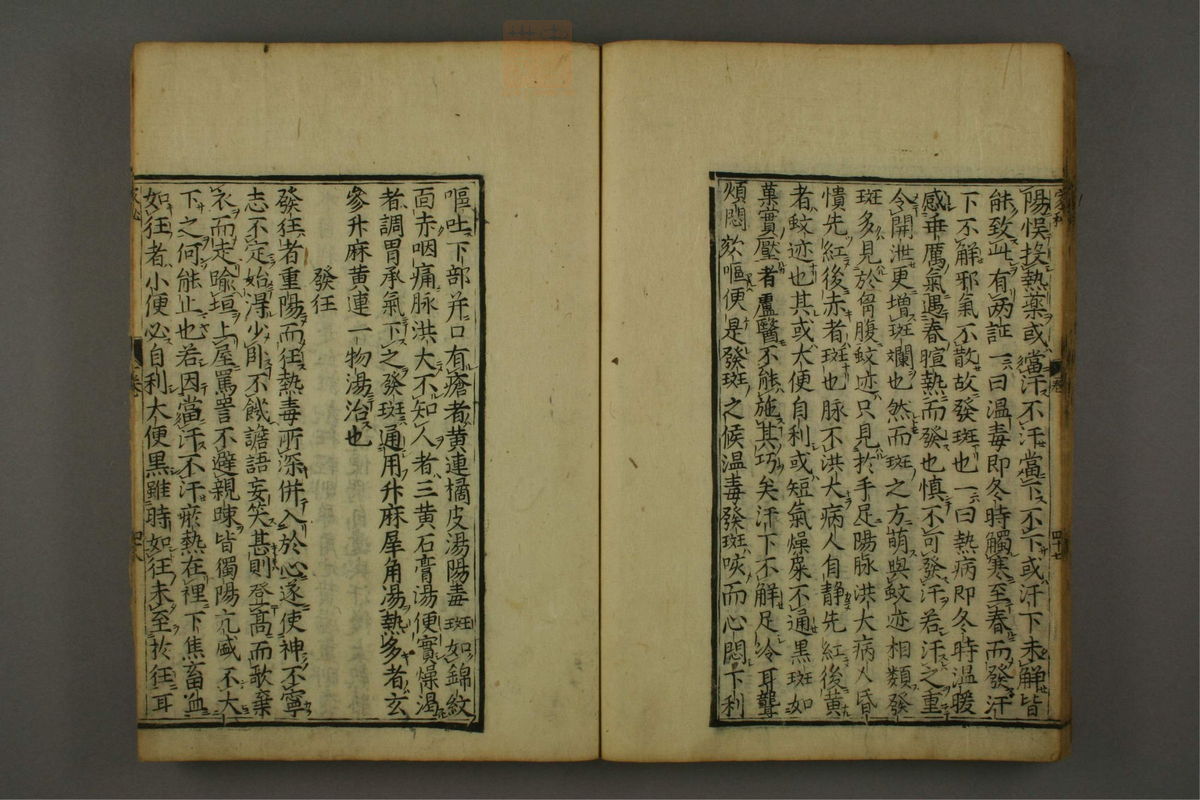 陽悞投熱藥或當汗不汗當下不下或汗下未觧皆
能致此有两証一曰温毒即冬時觸寒至春而發汗
下不觧邪氣不散故發斑也一曰熱病即冬時温暖
感乖厲氣遇春暄熱而發也慎不可發汗若汗之重
令開泄更増斑斕也然而斑之方萌與蚊迹相類發
斑多見於胷腹蚊迹只見於手足陽脉洪大病人昏
憒先紅後赤者斑也脉不洪大病人自静先紅後黄
者蚊迹也其或大便自利或短氣燥屎不通黒斑如
菓實壓者盧醫不能施其巧矣汗下不觧足冷耳聾
煩悶欬嘔便是發斑之候温毒發斑咳而心悶下利
四十七
嘔吐下部并口有瘡者黄連橘皮湯陽毒斑如錦紋
面赤咽痛脉洪大不知人者三黄石膏湯便實燥渴
者調胃承氣下之發斑通用升麻犀角湯熱多者玄
參升麻黄連一物湯治也
發狂
發狂者重陽而狂熱毒所深併入於心遂使神不寧
志不定始淂少卧不饑譫語妄笑甚則登髙而歌棄
衣而走踰垣上屋罵詈不避親疎皆獨陽亢盛不大
下之何能止也若因當汗不汗瘀熱在裡下焦畜血
如狂者小便必自利大便黒雖時如狂未至於狂耳
卷
四十八